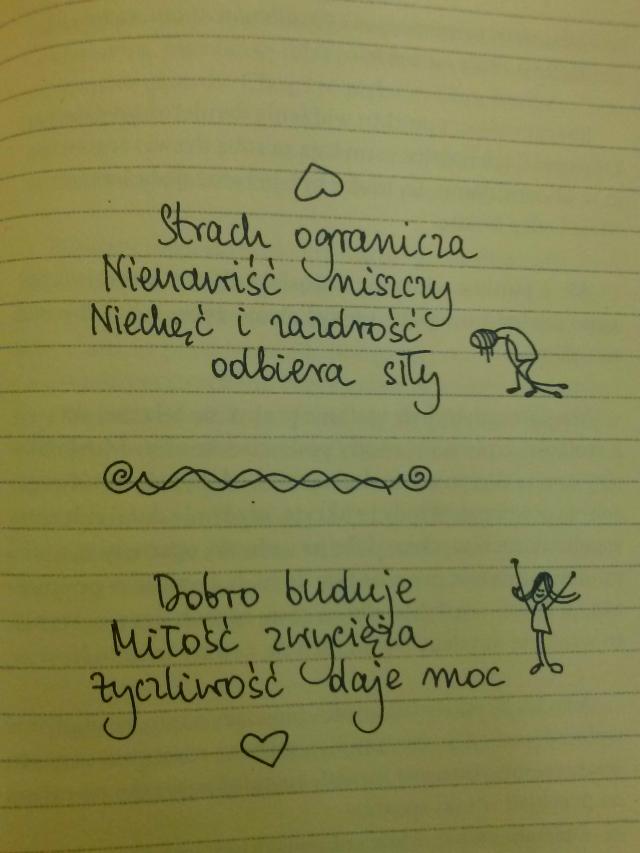 Strach ogranicza
Nienawiść niszczy
Niechęć i zazdrość
odbiera siły
Dobro buduje
Miłość zwycięża
Życzliwość daje moc